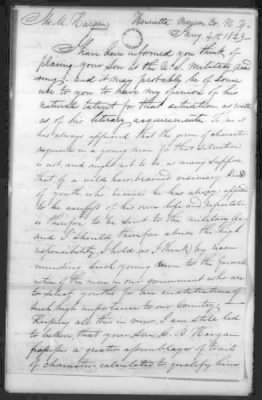 Henrietta Monroe Co. N. Y.
Jany 4th 1829
Mr M. Hargan
I have been informed you think of
placing your Son at the U. S. Military Acad
emy. And it may probably be of some
use to you to have my opinion of his
natural talent for that situation as well
as of his literary acquirements. To me it
has always appeared that the germ of character
requisite in a young man for this situation
is not, and ought not to be as many suppose
that of a wild hair brained visionary kind
of youth who because he has always appeared
to be careful of his own life and reputation
is therefore to be sent to the military
and I should therefore abuse the high
responsibility I hold, as I think, by recom
mending such young men to the
notice of the men in our government who are
to select youths for an institution of
such high importance to our Country.
Keeping all this in view I am still led
to believe, that your Son, D. B. Hargan
possess a greater assemblage of traits
of character, calculated to qualify him